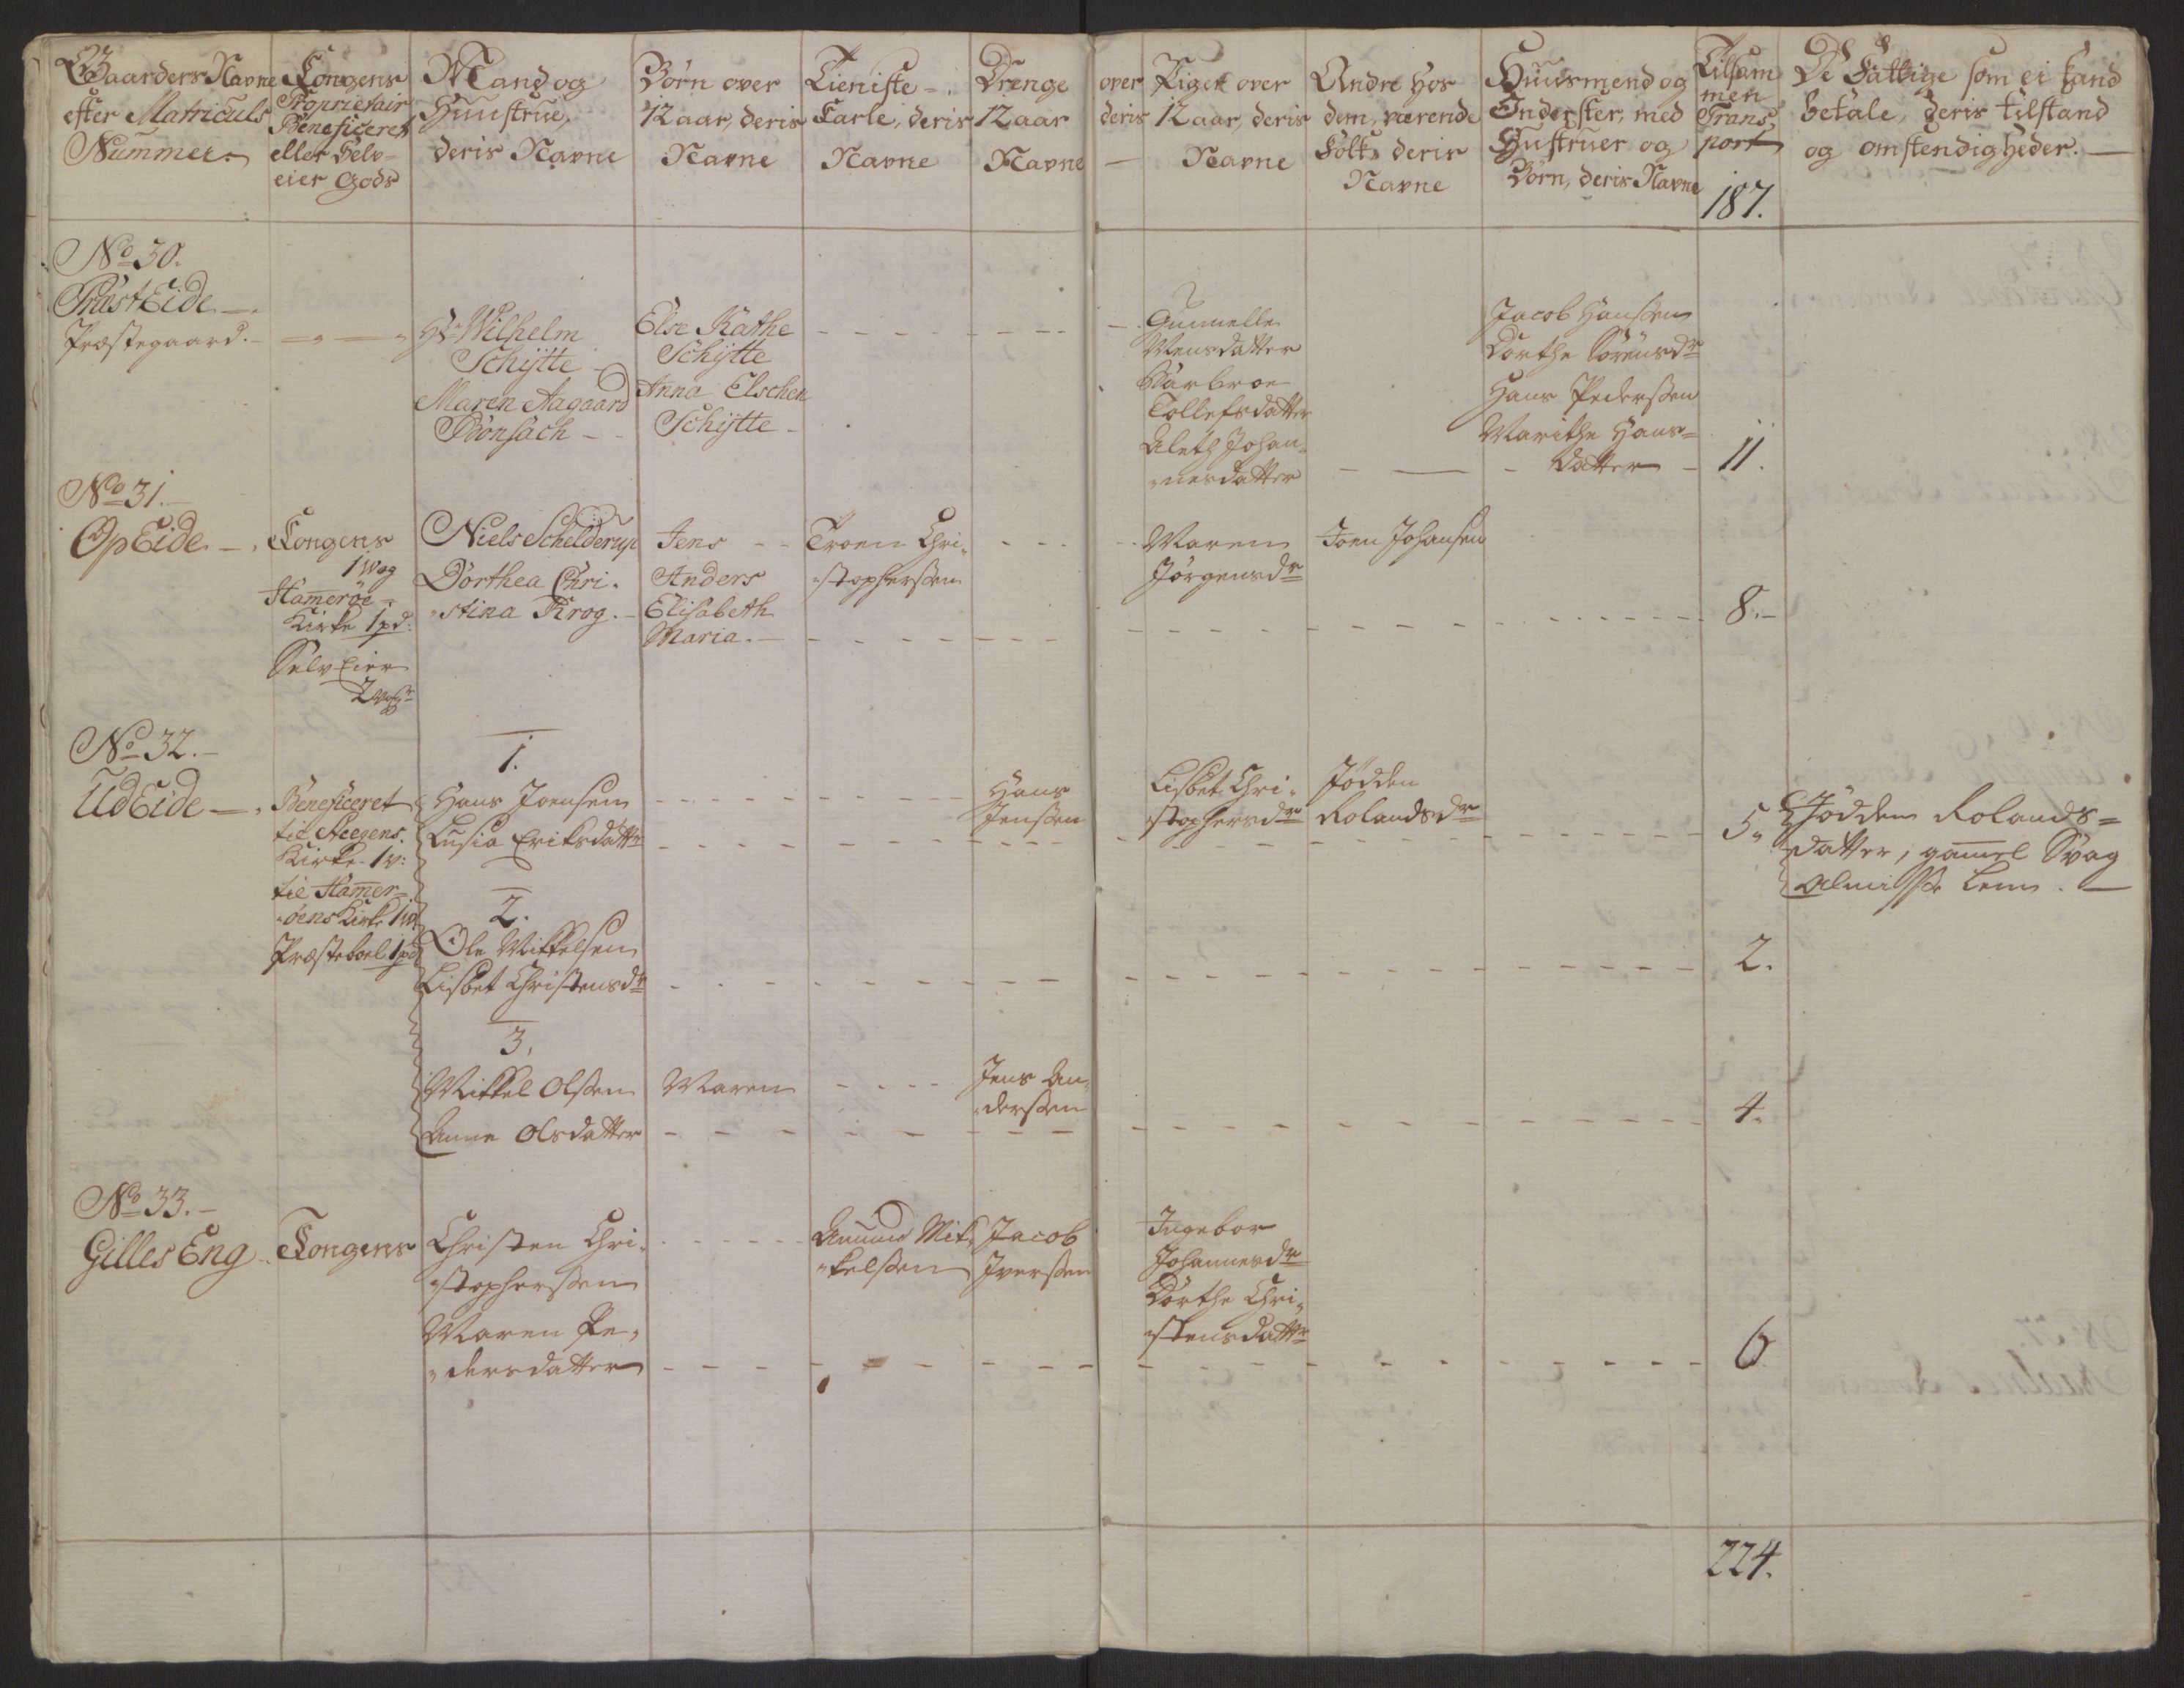 Gaarders Navne
efter Matriculs
Nummer.
Kongens
Proprietair
Beneficeret
eller Selv=
eier Gods
Mand og
Huustrue,
deris Navne
Börn over
12 aar, deris
Navne
Tieniste =
Karle, deris
Navne
Drenge over
12 aar deris
Navne —
Piger over
12 aar, deris
Navne
Andre hos
dem, værende
Folk, deris
Navne
Huusmend og
Inderster, med
Hustruer og
Börn, deris Navne
Tilsam
men
Trans
port
187.
De Fattige som ei kand
betale, deris tilstand
og omstendigheder. —
No 30.
PræstEide —
Præstegaard.
Hr Wilhelm
Schÿtte
Maren Aagaard
Bönsach
Else Kathe
Schÿtte
Anna Elschen
Schÿtte
Gunnelle
Mensdatter
Tollefsdatter
Aleth Johan-
nesdatter
Jacob Hansen
Dorthe Sörensdr
Hans Pederssen
Marithe Hans=
datter
11.
No 31.
OpEide
Kongens
1 Wog
Hameröe
Kirke 1 pd:
Selv Eier
Niels Schelderup
Dorthea Chri-
stina Krog.
Jens
Anders
Elisabeth
Maria.
Troen Chri-
stopherssen
Maren
Jörgensdr
Joen Johansen
8.
No 32.
UdEide
Beneficeret
til Steegens
Kirke 1 v:
til Hamer-
öens Kirke 1 w
Præsteboel 1 pd
1.
Hans Joensen
Lusia Eriksdattr
Hans
Jenssen
Lisbet Chri-
stophersdr
Jödden
Rolandsdr
5.
Jödden Rolands=
datter, gamel Svag
Almisse Lem. —
2.
Ole Mikkelsen
Lisbet Christensdr
2.
3.
Mikkel Olssen
Anne Olsdatter
Maren
Jens An-
derssen
4.
No 33.
Gilles Eng
Kongens
Christen Chri-
stopherssen
Maren Pe-
dersdatter
Amund Mik-
kelssen
Jacob
Iverssen
Ingebor
Johannesdr
Dorthe Chri-
stensdattr
6
224.